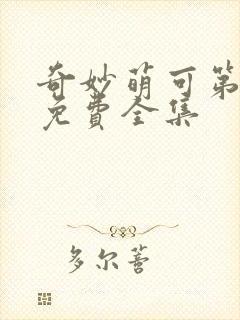 奇妙萌可第
免费全集
多尔蒈